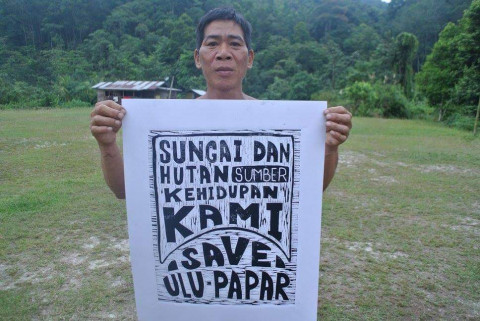 SUNGAI DAN
HUTAN SUMBER
"KEHIDUPAN"
KAMI
SAVE
ULU-PAPAR